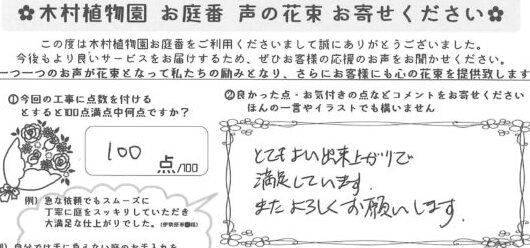 ✿木村植物園 お庭番 声の花束 お寄せください✿
この度は木村植物園お庭番をご利用くださいまして誠にありがとうございました。
今後もより良いサービスをお届けするため、ぜひお客様の応援のお声をお聞かせください。
一つ一つのお声が花束となって私たちの励みとなり、さらにお客様にも心の花束を提供致します
①今回の工事に点数を付ける
とすると100点満点中何点ですか?
100 点/100
例) 急な依頼でもスムーズに
丁寧に庭をスッキリしていただき
大満足な仕上がりでした。
②良かった点・お気付きの点などコメントをお寄せください
ほんの一言やイラストでも構いません
とてもよい出来上がりで
満足しています。
またよろしくお願いします。